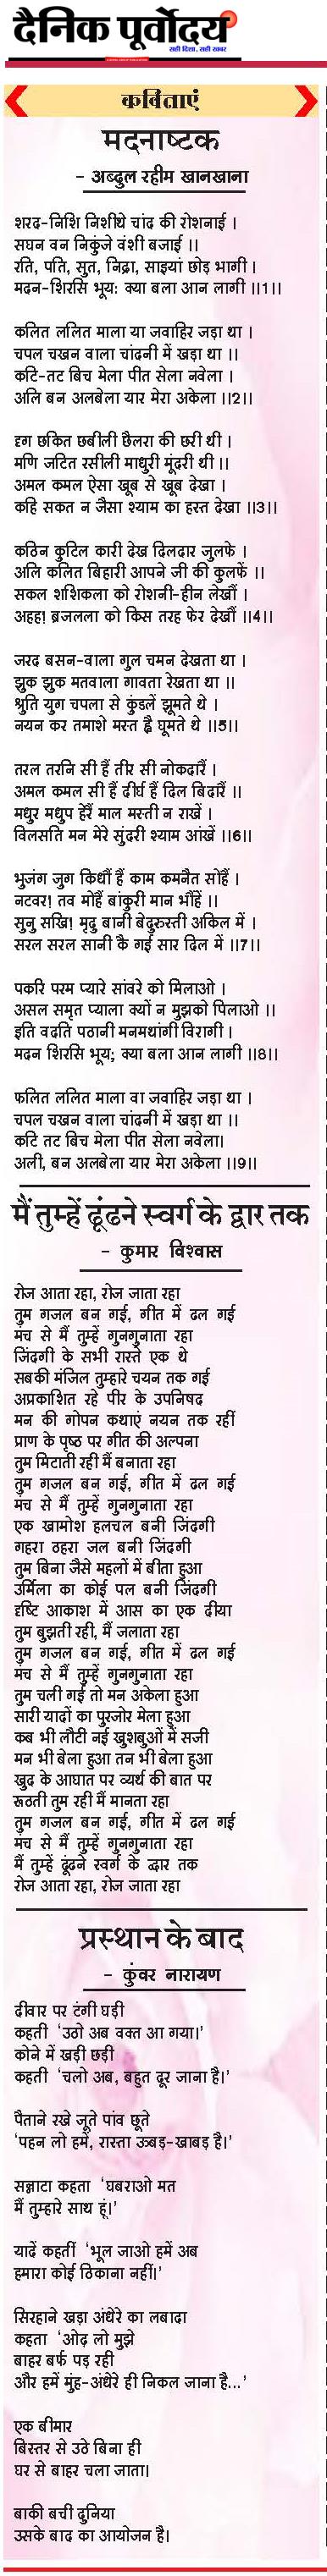 दैनिक पूर्वोदय
सही दिशा, सही खबर
कविताएं
मदनाष्टक
- अब्दुल रहीम खानखाना
शरद-निशि निशीथे चांद की रोशनाई ।
सघन वन निकुंजे वंशी बजाई ।।
रति, पति, सुत, निद्रा, साइयां छोड़ भागी ।
मदन-शिरसि भूय: क्या बला आन लागी ।।1।।
कलित ललित माला या जवाहिर जड़ा था ।
चपल चखन वाला चांदनी में खड़ा था ।।
कटि-तट बिच मेला पीत सेला नवेला ।
अलि बन अलबेला यार मेरा अकेला ।।2।।
दृग छकित छबीली छैलरा की छरी थी ।
मणि जटित रसीली माधुरी मूंदरी थी ।।
अमल कमल ऐसा खूब से खूब देखा ।
कहि सकत न जैसा श्याम का हस्त देखा ।।3।।
कठिन कुटिल कारी देख दिलदार जुलफे ।
अलि कलित बिहारी आपने जी की कुलफें ।।
सकल शशिकला को रोशनी-हीन लेखौं ।
अहह! ब्रजलला को किस तरह फेर देखौं ।।4।।
जरद बसन-वाला गुल चमन देखता था ।
झुक झुक मतवाला गावता रेखता था ।।
श्रुति युग चपला से कुंडलें झूमते थे ।
नयन कर तमाशे मस्त ह्वै घूमते थे ।।5।।
तरल तरनि सी हैं तीर सी नोकदारैं ।
अमल कमल सी हैं दीर्घ हैं दिल बिदारैं ।।
मधुर मधुप हेरैं माल मस्ती न राखें ।
विलसति मन मेरे सुंदरी श्याम आंखें ।।6।।
भुजंग जुग किधौं हैं काम कमनैत सोहैं ।
नटवर! तव मोहैं बांकुरी मान भौंहें ।।
सुनु सखि! मृदु बानी बेदुरुस्ती अकिल में ।
सरल सरल सानी कै गई सार दिल में ।।7।।
पकरि परम प्यारे सांवरे को मिलाओ ।
असल समृत प्याला क्यों न मुझको पिलाओ ।।
इति वदति पठानी मनमथांगी विरागी ।
मदन शिरसि भूय; क्या बला आन लागी ।।8।।
फलित ललित माला वा जवाहिर जड़ा था ।
चपल चखन वाला चांदनी में खड़ा था ।।
कटि तट बिच मेला पीत सेला नवेला।
अली, बन अलबेला यार मेरा अकेला ।।9।।
मैं तुम्हें ढूंढने स्वर्ग के द्वार तक
- कुमार विश्वास
रोज आता रहा, रोज जाता रहा
तुम गजल बन गई, गीत में ढल गई
मंच से मैं तुम्हें गुनगुनाता रहा
जिंदगी के सभी रास्ते एक थे
सबकी मंजिल तुम्हारे चयन तक गई
अप्रकाशित रहे पीर के उपनिषद
मन की गोपन कथाएं नयन तक रहीं
प्राण के पृष्ठ पर गीत की अल्पना
तुम मिटाती रही मैं बनाता रहा
तुम गजल बन गई, गीत में ढल गई
मंच से मैं तुम्हें गुनगुनाता रहा
एक खामोश हलचल बनी जिंदगी
गहरा ठहरा जल बनी जिंदगी
तुम बिना जैसे महलों में बीता हुआ
उर्मिला का कोई पल बनी जिंदगी
दृष्टि आकाश में आस का एक दीया
तुम बुझती रही, मैं जलाता रहा
तुम गजल बन गई, गीत में ढल गई
मंच से मैं तुम्हें गुनगुनाता रहा
तुम चली गई तो मन अकेला हुआ
सारी यादों का पुरजोर मेला हुआ
कब भी लौटी नई खुशबुओं में सजी
मन भी बेला हुआ तन भी बेला हुआ
खुद के आघात पर व्यर्थ की बात पर
रूठती तुम रही मैं मानता रहा
तुम गजल बन गई, गीत में ढल गई
मंच से मैं तुम्हें गुनगुनाता रहा
मैं तुम्हें ढूंढने स्वर्ग के द्वार तक
रोज आता रहा, रोज जाता रहा
प्रस्थान के बाद
- कुंवर नारायण
दीवार पर टंगी घड़ी
कहती 'उठो अब वक्त आ गया।'
कोने में खड़ी छड़ी
कहती 'चलो अब, बहुत दूर जाना है।'
पैताने रखे जूते पांव छूते
'पहन लो हमें, रास्ता ऊबड़-खाबड़ है।'
सन्नाटा कहता 'घबराओ मत
मैं तुम्हारे साथ हूं।'
यादें कहतीं 'भूल जाओ हमें अब
हमारा कोई ठिकाना नहीं।'
सिरहाने खड़ा अंधेरे का लबादा
कहता 'ओढ़ लो मुझे
बाहर बर्फ पड़ रही
और हमें मुंह-अंधेरे ही निकल जाना है...'
एक बीमार
बिस्तर से उठे बिना ही
घर से बाहर चला जाता।
बाकी बची दुनिया
उसके बाद का आयोजन है।